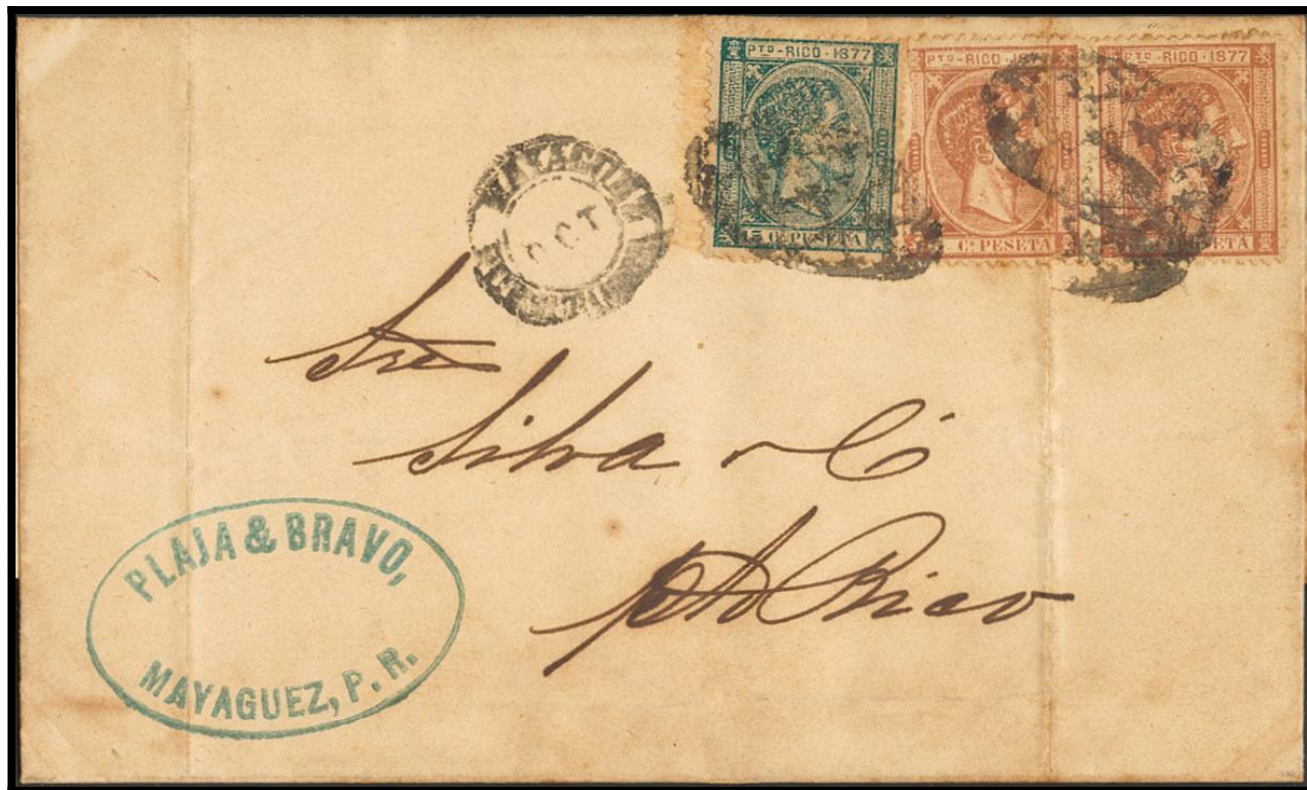 PTO-RICO·1877
15 Cs PESETA
PTO-RICO·1877
Cs PESETA
PTO-RICO·1877
PESETA
MAYAGUEZ
OCT
Sres
Silva y Cª
Pto Rico
PLAJA & BRAVO,
MAYAGUEZ, P. R.